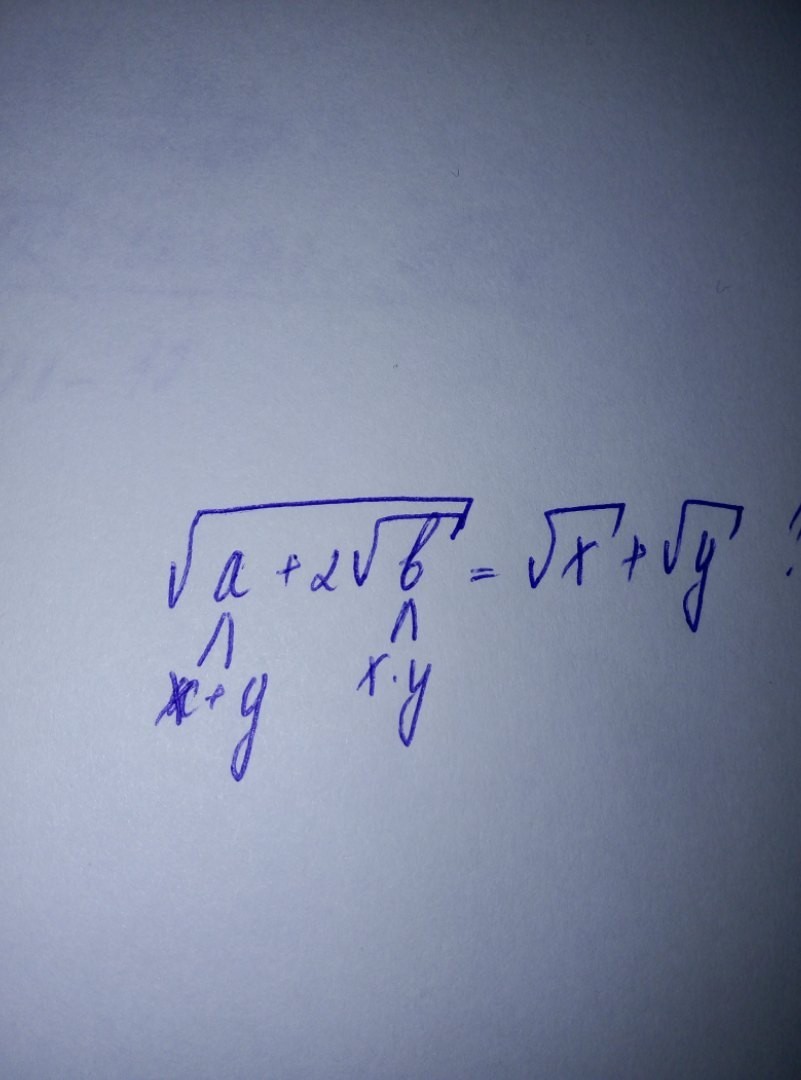 √(a + 2√b) = √x + √y
∧ ∧
x + y x · y